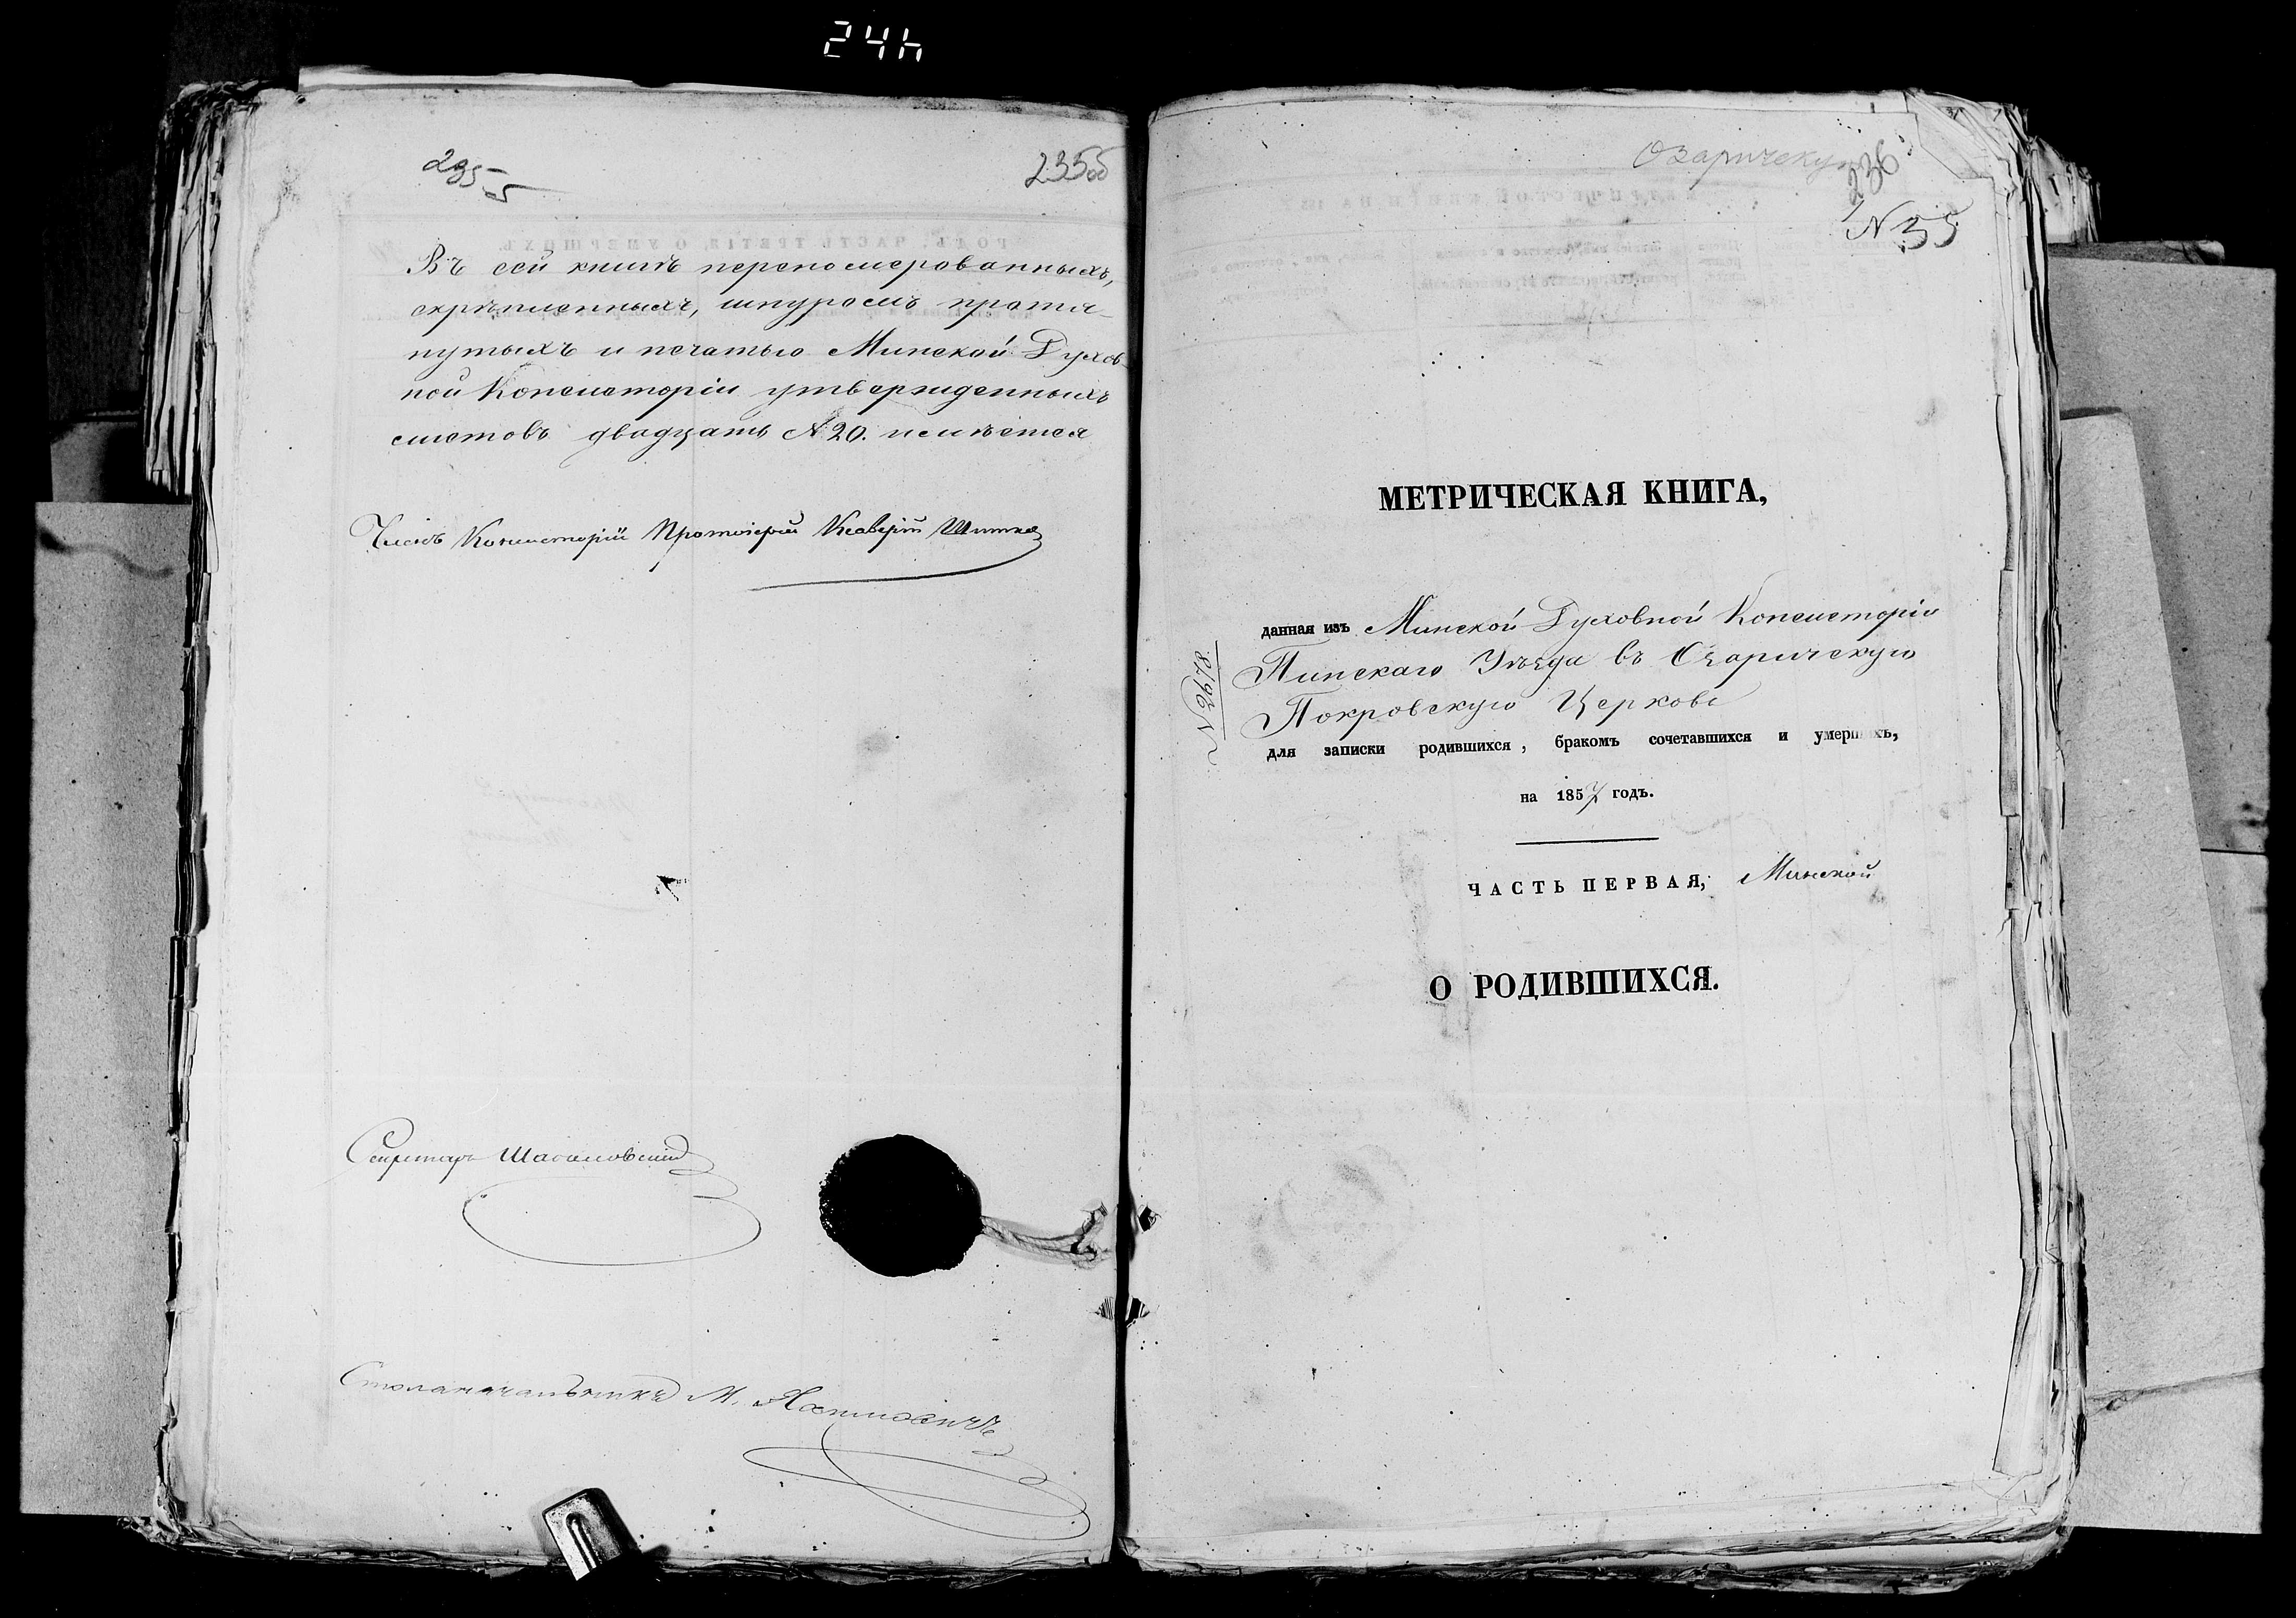 24h
235
235об
Въ сей книгѣ перенომерованныхъ,
скрѣпленныхъ, шнуромъ протя-
нутыхъ и печатью Минской Духов-
ной Консисторіи утвержденныхъ
листовъ двадцать № 20. имѣется
Членъ Консисторіи Протоіерей Ксаверій
Секретарь
Столоначальникъ М.
Озаричскую
236
№ 35
МЕТРИЧЕСКАЯ КНИГА,
данная изъ Минской Духовной Консисторіи
Пинскаго Уѣзда въ Озаричскую
Покровскую Церковь
№ 8192
для записки родившихся, бракомъ сочетавшихся и умершихъ,
на 1857 годъ.
ЧАСТЬ ПЕРВАЯ, Минской
О РОДИВШИХСЯ.